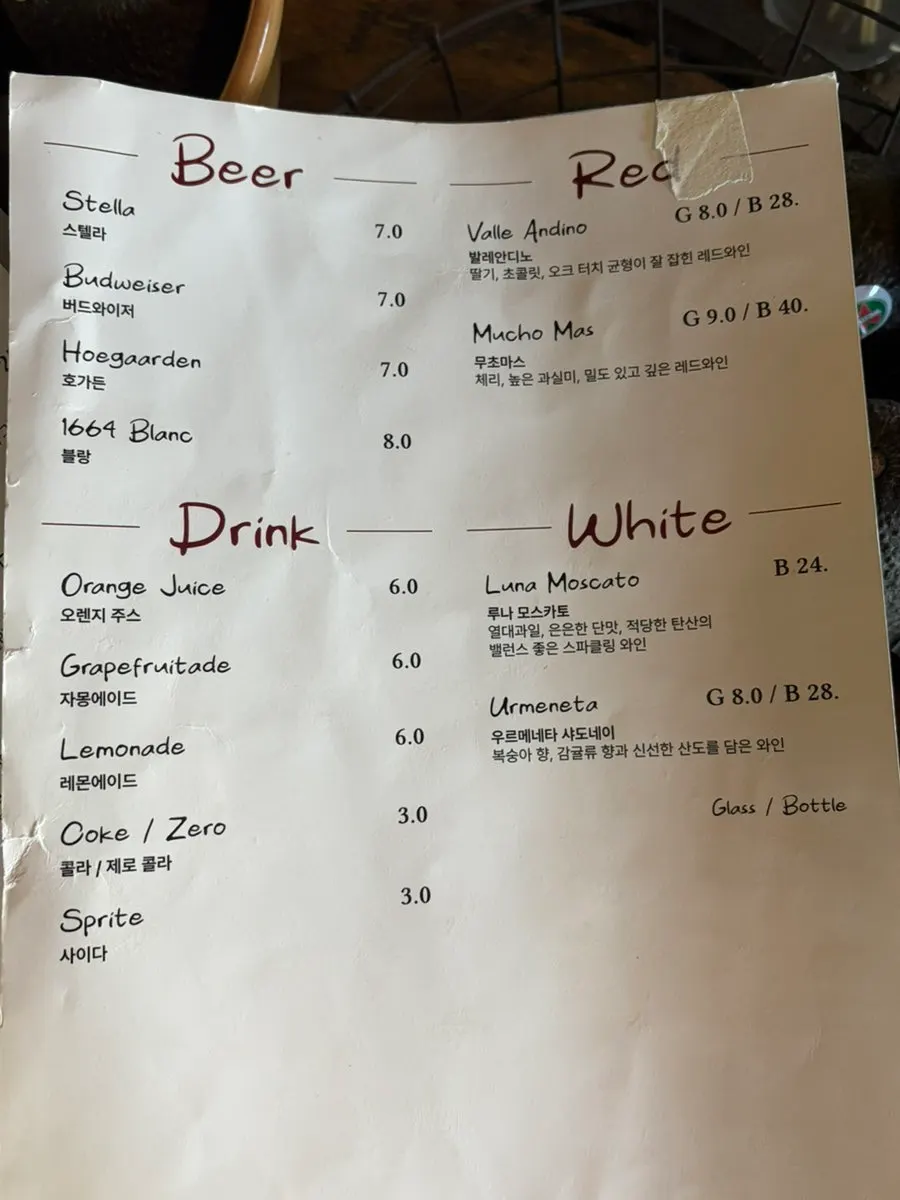 Beer
Stella 7.0
스텔라
Budweiser 7.0
버드와이저
Hoegaarden 7.0
호가든
1664 Blanc 8.0
블랑
Drink
Orange Juice 6.0
오렌지 주스
Grapefruitade 6.0
자몽에이드
Lemonade 6.0
레몬에이드
Coke / Zero 3.0
콜라 / 제로 콜라
Sprite 3.0
사이다
Red
Valle Andino G 8.0 / B 28.
발레안디노
딸기, 초콜릿, 오크 터치 균형이 잘 잡힌 레드와인
Mucho Mas G 9.0 / B 40.
무초마스
체리, 높은 과실미, 밀도 있고 깊은 레드와인
White
Luna Moscato B 24.
루나 모스카토
열대과일, 은은한 단맛, 적당한 탄산의
밸런스 좋은 스파클링 와인
Urmeneta G 8.0 / B 28.
우르메네타 샤도네이
복숭아 향, 감귤류 향과 신선한 산도를 담은 와인
Glass / Bottle